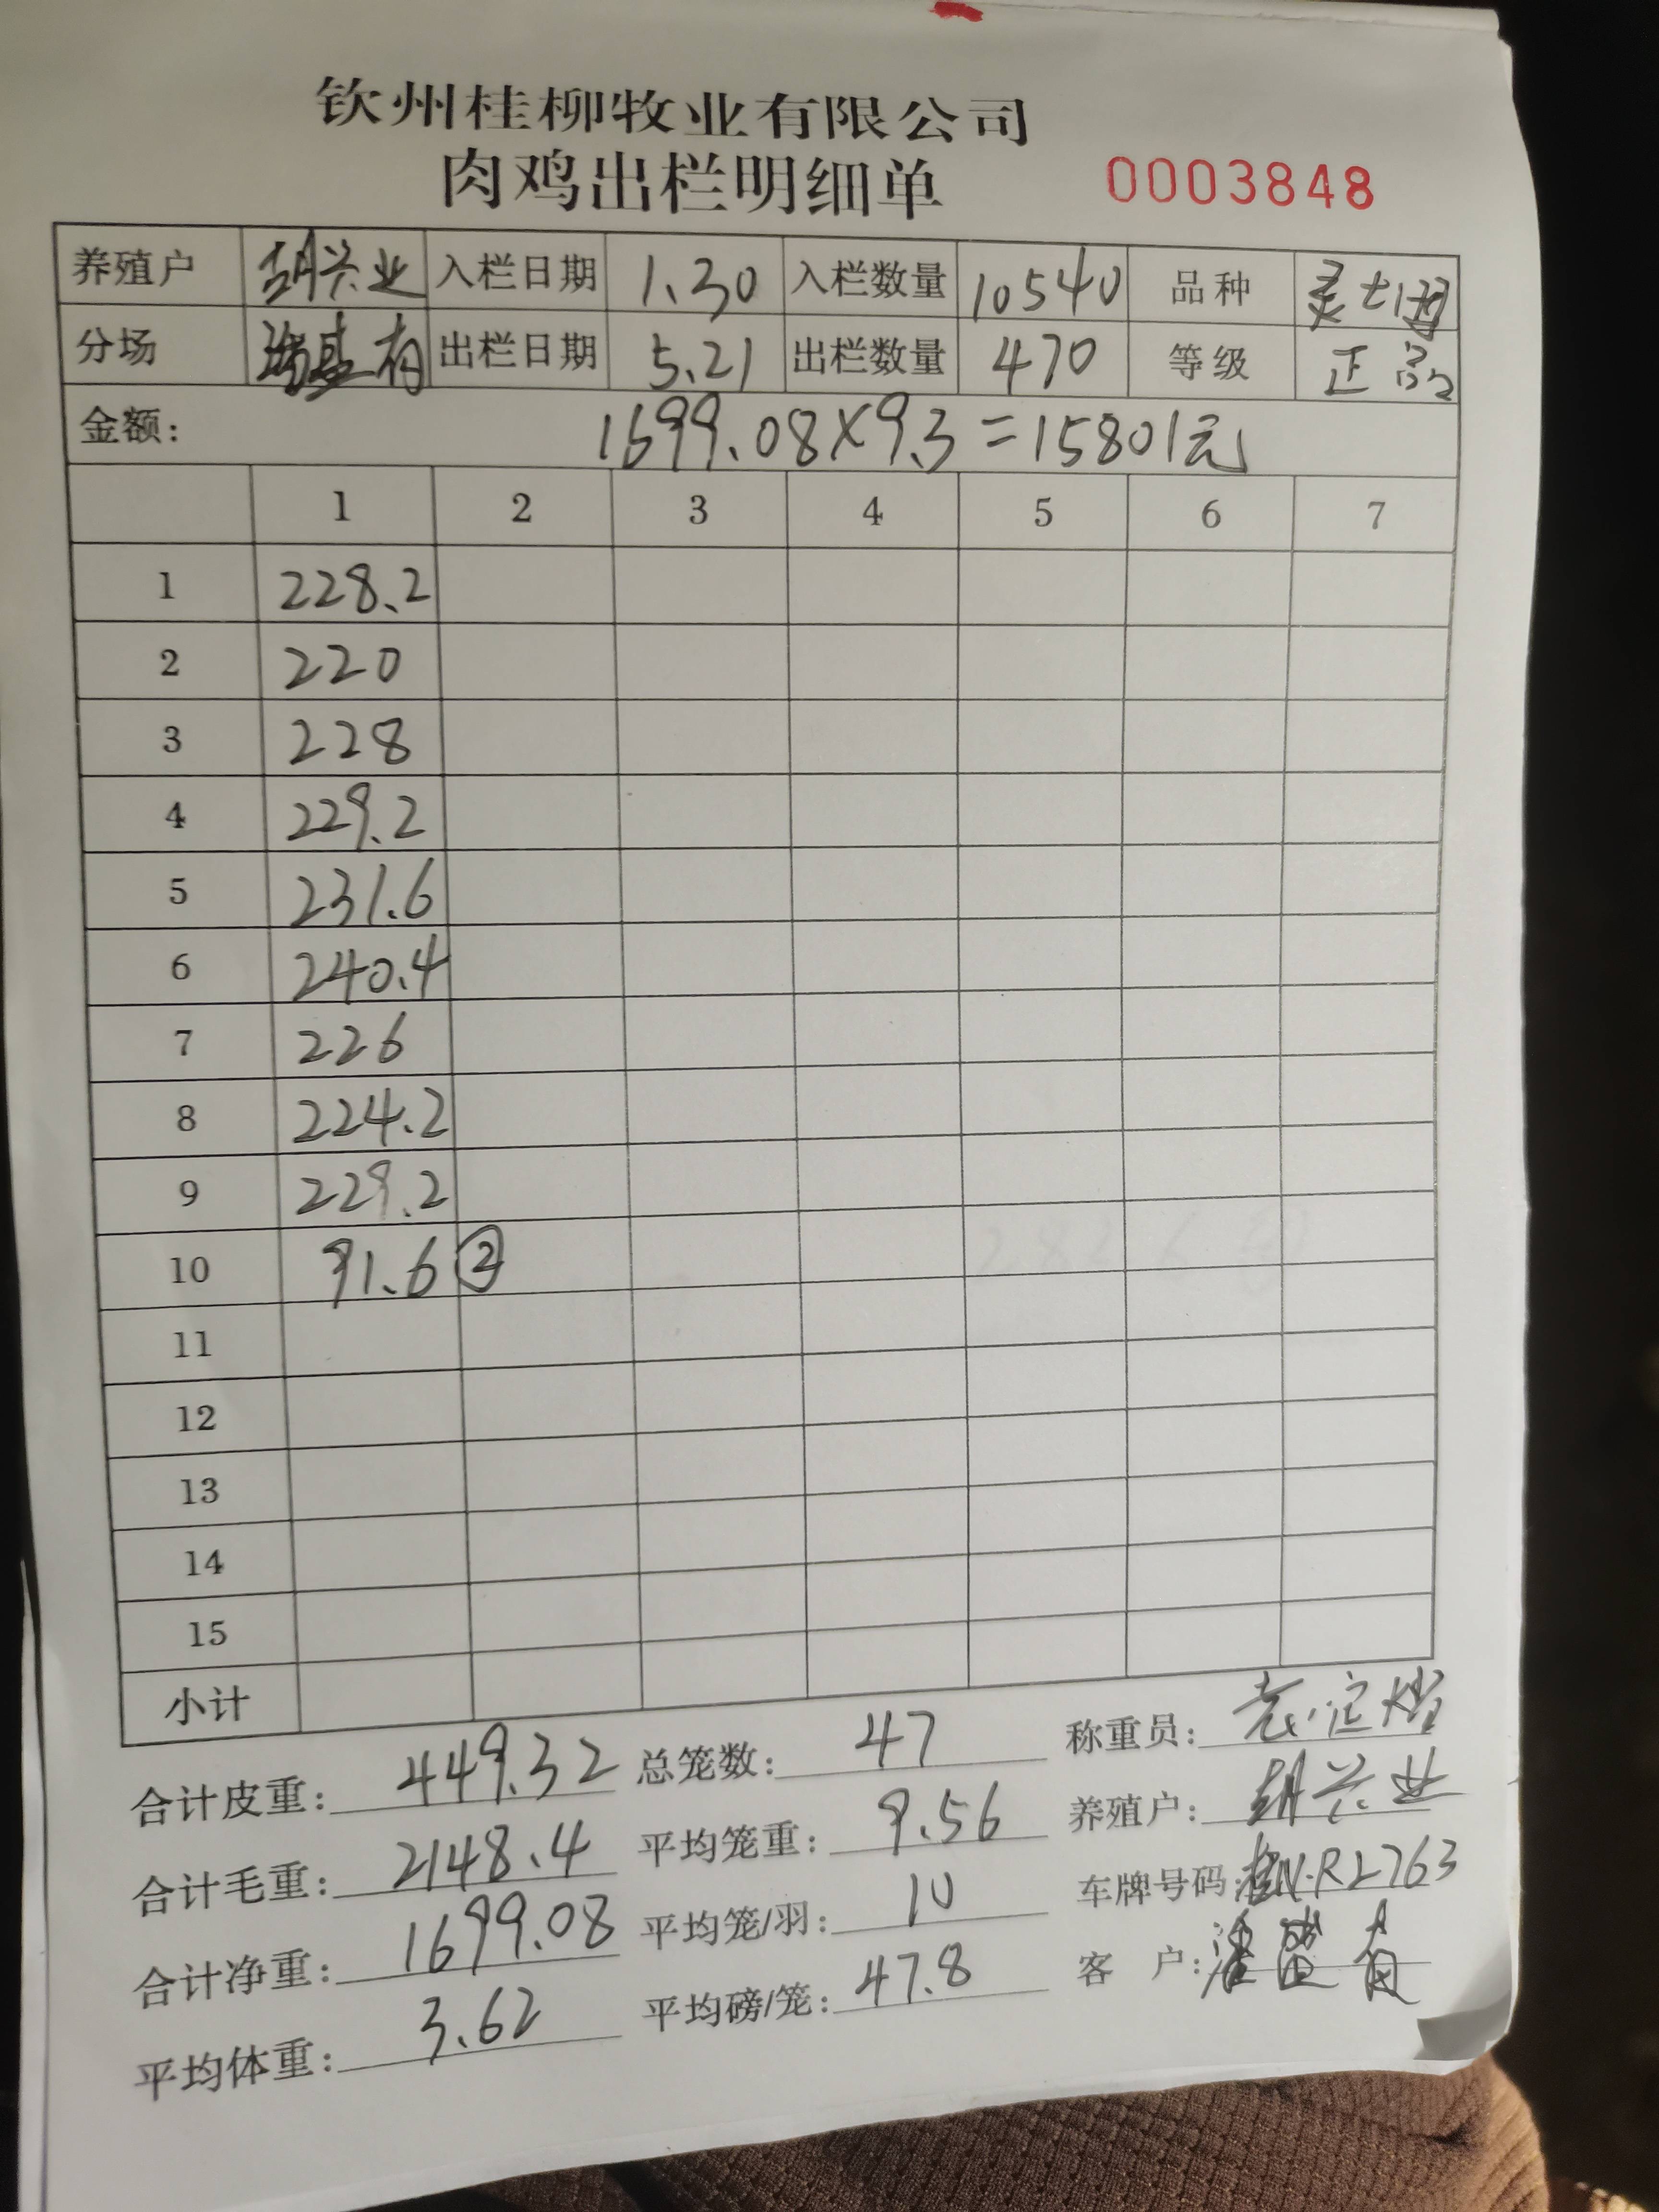 钦州桂柳牧业有限公司
肉鸡出栏明细单 0003848
养殖户 胡兴业 入栏日期 1.30 入栏数量 10540 品种
分场 出栏日期 5.21 出栏数量 470 等级 正品
金额: 1699.08×9.3=15801元
1 2 3 4 5 6 7
1 228.2
2 220
3 228
4 229.2
5 231.6
6 240.4
7 226
8 224.2
9 229.2
10 91.6 ②
11
12
13
14
15
小计
合计皮重: 449.32 总笼数: 47 称重员:
合计毛重: 2148.4 平均笼重: 9.56 养殖户: 胡兴业
合计净重: 1699.08 平均笼/羽: 10 车牌号码: 桂N.RL763
平均体重: 3.62 平均磅/笼: 47.8 客 户: